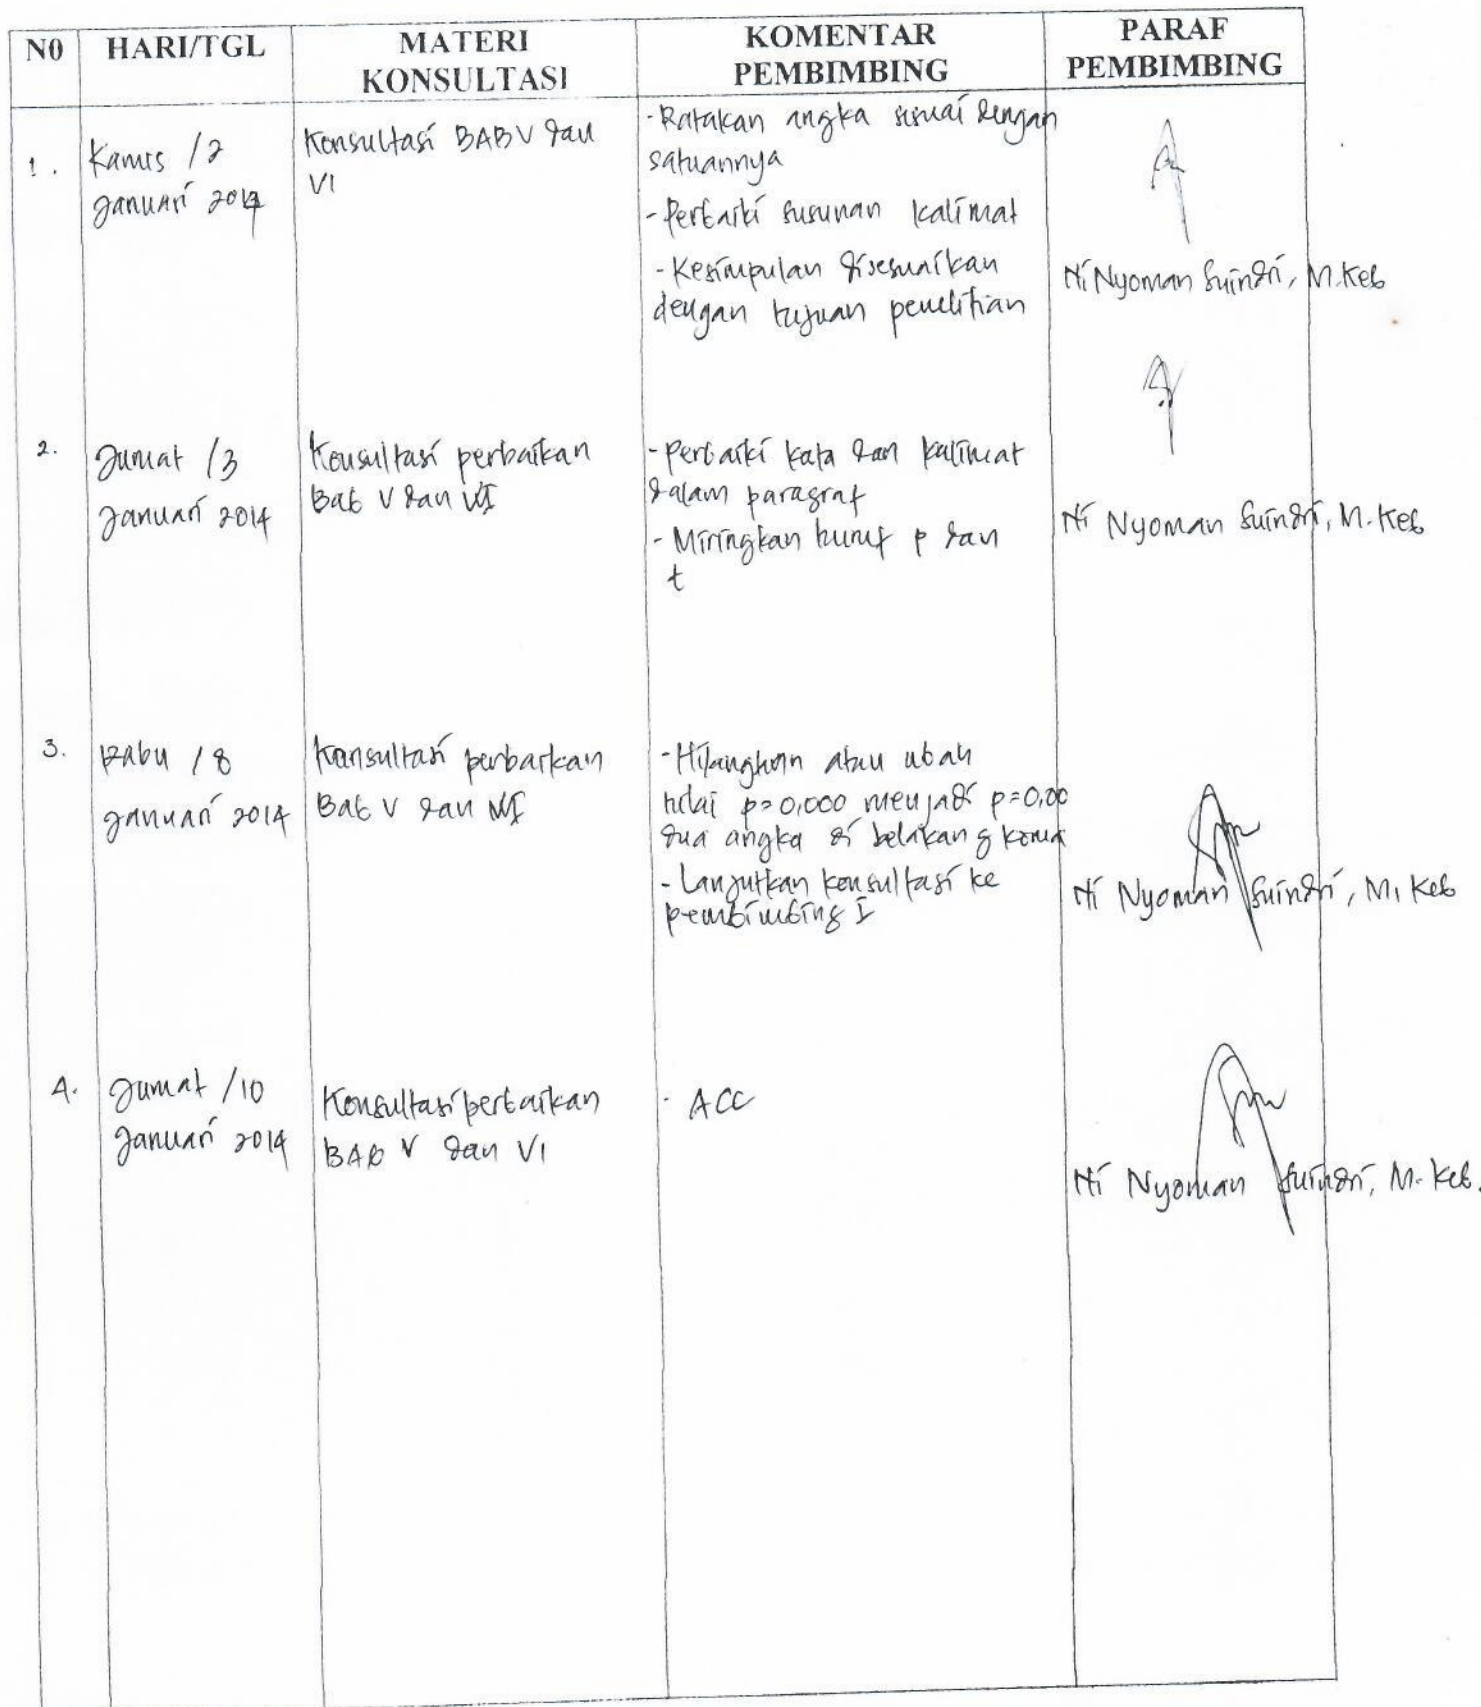 N0 HARI/TGL MATERI KONSULTASI KOMENTAR PEMBIMBING PARAF PEMBIMBING
1. Kamis /2
Januari 2014
Konsultasi BAB V dan
VI
- Ratakan angka sesuai dengan
satuannya
- Perbaiki susunan kalimat
- Kesimpulan disesuaikan
dengan tujuan penelitian
Ni Nyoman Suindri, M.Keb
2. Jumat /3
Januari 2014
Konsultasi perbaikan
Bab V dan VI
- Perbaiki kata dan kalimat
dalam paragraf
- Miringkan huruf p dan
t
Ni Nyoman Suindri, M.Keb
3. Rabu /8
Januari 2014
Konsultasi perbaikan
Bab V dan VI
- Hilangkan atau ubah
nilai p=0,000 menjadi p=0,00
dua angka di belakang koma
- Lanjutkan konsultasi ke
pembimbing I
Ni Nyoman Suindri, M.Keb
4. Jumat /10
Januari 2014
Konsultasi perbaikan
BAB V dan VI
- ACC
Ni Nyoman Suindri, M.Keb.